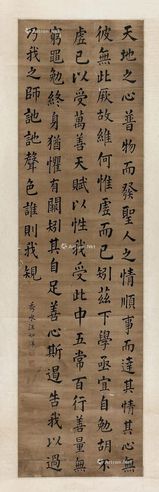 天地之心普物而發聖人之情順事而達其情其心無
彼無此厥故維何惟虛而已矧茲下學亟宜自勉胡不
虛己以受萬善天賦以性我受此中五常百行善量無
窮黽勉終身猶懼有闕矧其自足善心斯遏告我以過
乃我之師訑訑聲色誰則我規
秀水汪如洋